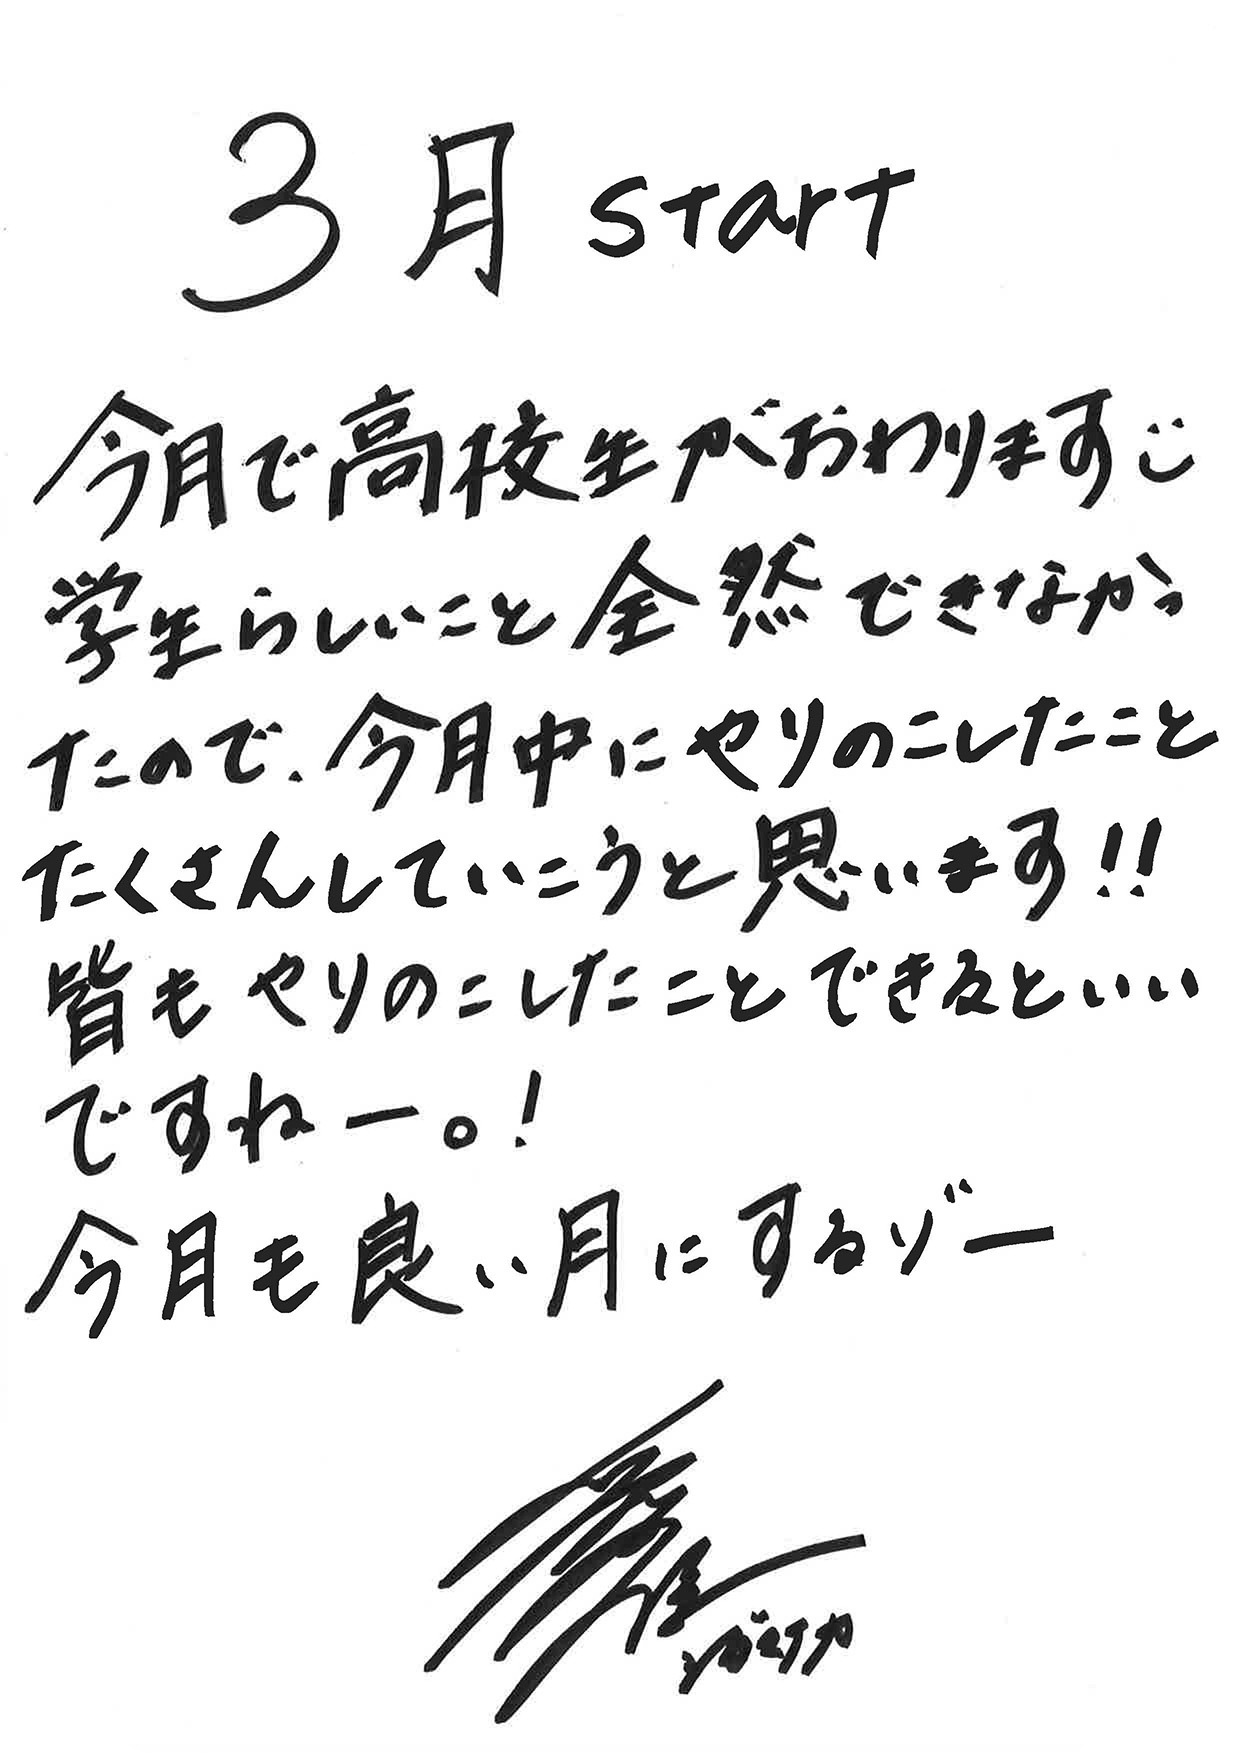 3月 start
今月で高校生がおわります
学生らしいこと全然できなかっ
たので、今月中にやりのこしたこと
たくさんしていこうと思います!!
皆もやりのこしたことできるといい
ですねー。!
今月も良い月にするゾー